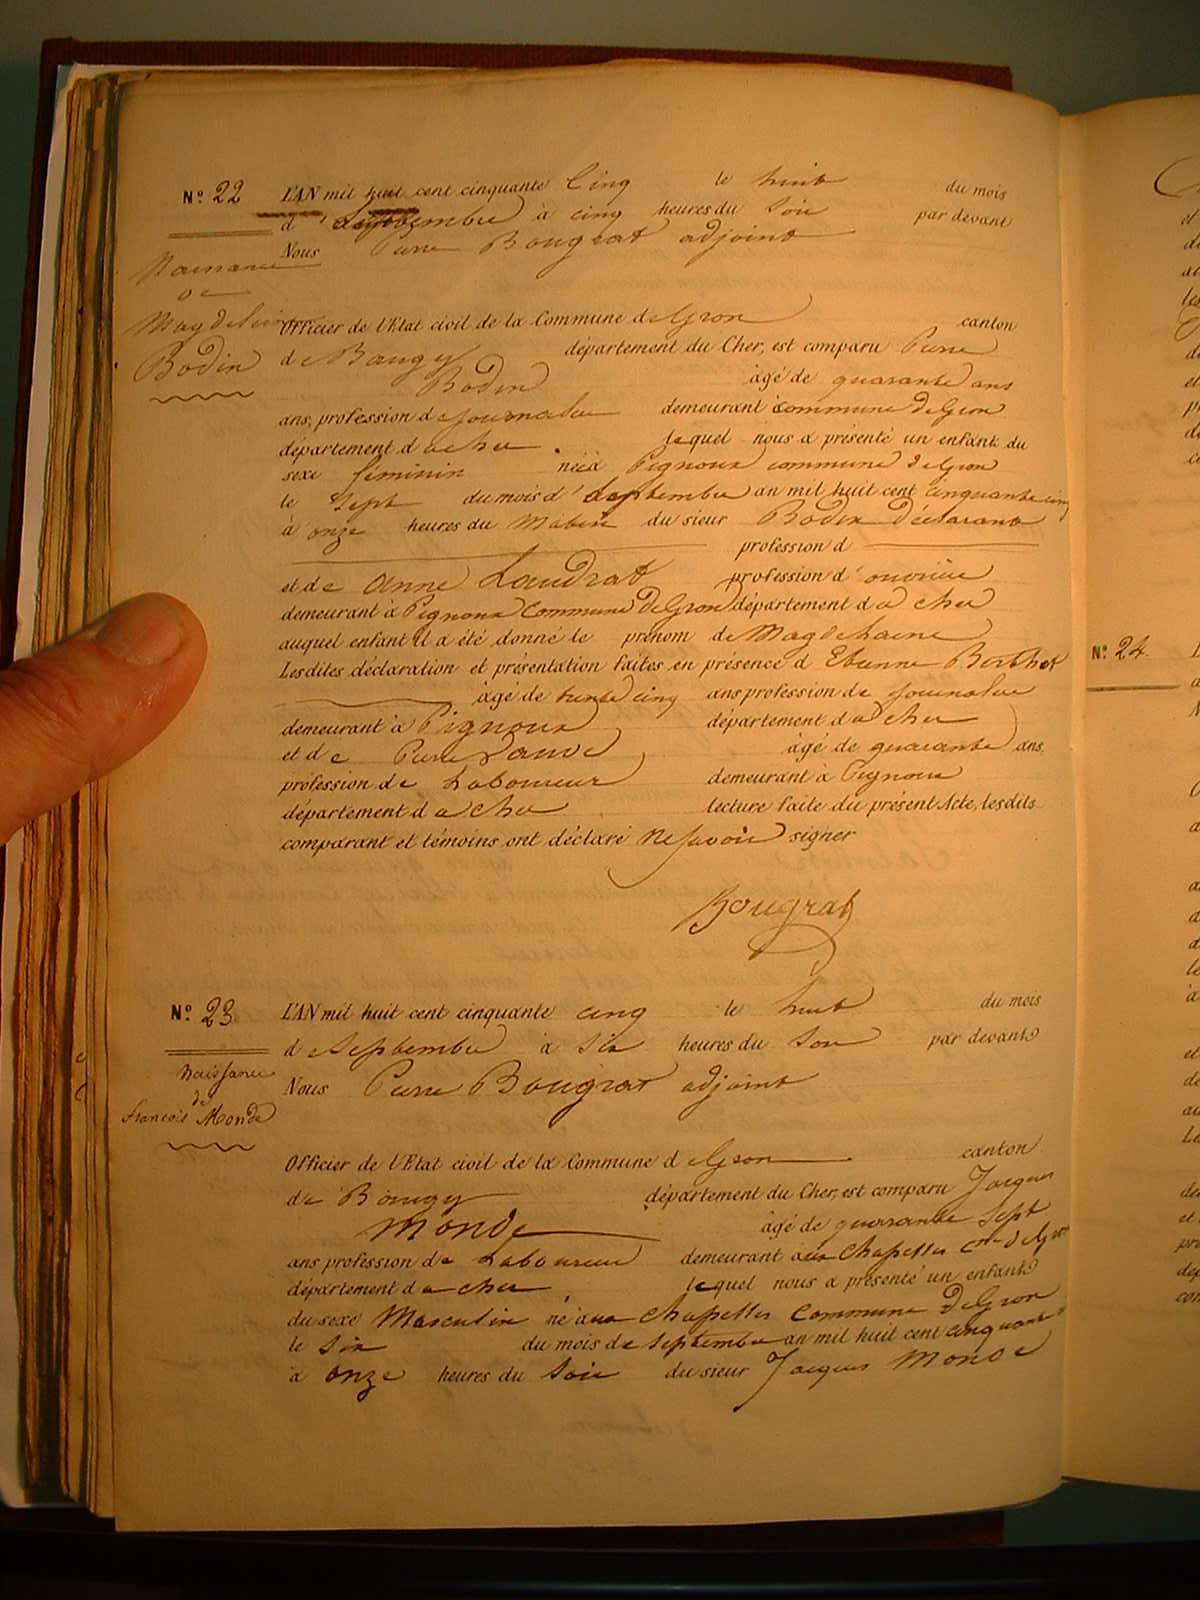 N° 22 L'AN mil huit cent cinquante Cinq le huit du mois
d'Septembre à cinq heures du Soir par devant
Nous Pierre Bougrat adjoint
Naissance
de
Magdeleine
Bodin
Officier de l'Etat civil de la Commune de Gron canton
de Baugy département du Cher, est comparu Pierre
Bodin âgé de quarante ans
ans, profession de journalier demeurant à commune de Gron
département du cher lequel nous a présenté un enfant du
sexe féminin née à Pignoux commune de Gron
le Sept du mois d'Septembre an mil huit cent cinquante cinq
à onze heures du Matin du sieur Bodin déclarant
profession d
et de anne Laudrat profession d'ouvrière
demeurant à Pignoux Commune de Gron département du cher
auquel enfant il a été donné le prénom de Magdelaine
Lesdites déclaration et présentation faites en présence d Etienne Berthet
âgé de trente cinq ans profession de journalier
demeurant à Pignoux département du cher
et de Pierre âgé de quarante ans,
profession de Laboureur demeurant à Pignoux
département du cher lecture faite du présent Acte, lesdits
comparant et témoins ont déclaré ne savoir signer
Bougrat
N° 23 L'AN mil huit cent cinquante cinq le huit du mois
de Septembre à Six heures du Soir par devant
Nous Pierre Bougrat adjoint
Naissance
de
francois Monde
Officier de l'Etat civil de la Commune de Gron canton
de Bougy département du Cher, est comparu Jacques
Monde âgé de quarante Sept
ans profession de Laboureur demeurant aux Chapelles Cne de Gron
département du cher lequel nous a présenté un enfant
du sexe Masculin né aux Chapelles Commune de Gron
le Six du mois de Septembre an mil huit cent cinquante
à onze heures du Soir du sieur Jacques Monde
N° 24